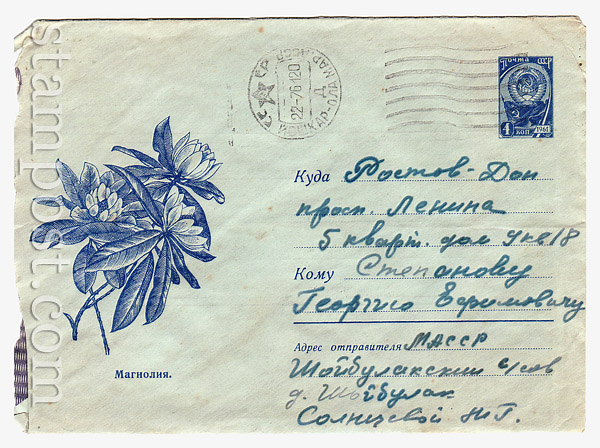 Почта СССР
4 коп
1961
22-7612О
ЙОШКАР-ОЛА МАР.
Д
Куда Ростов-Дон
просп. Ленина
5 кварт. дом
Кому Степанову
Георгию Ефимовичу
Адрес отправителя: МАССР
Шойбулакский с/сов
д. Шойбулак
Солнцевой Н.Г.
Магнолия.
stampost.com